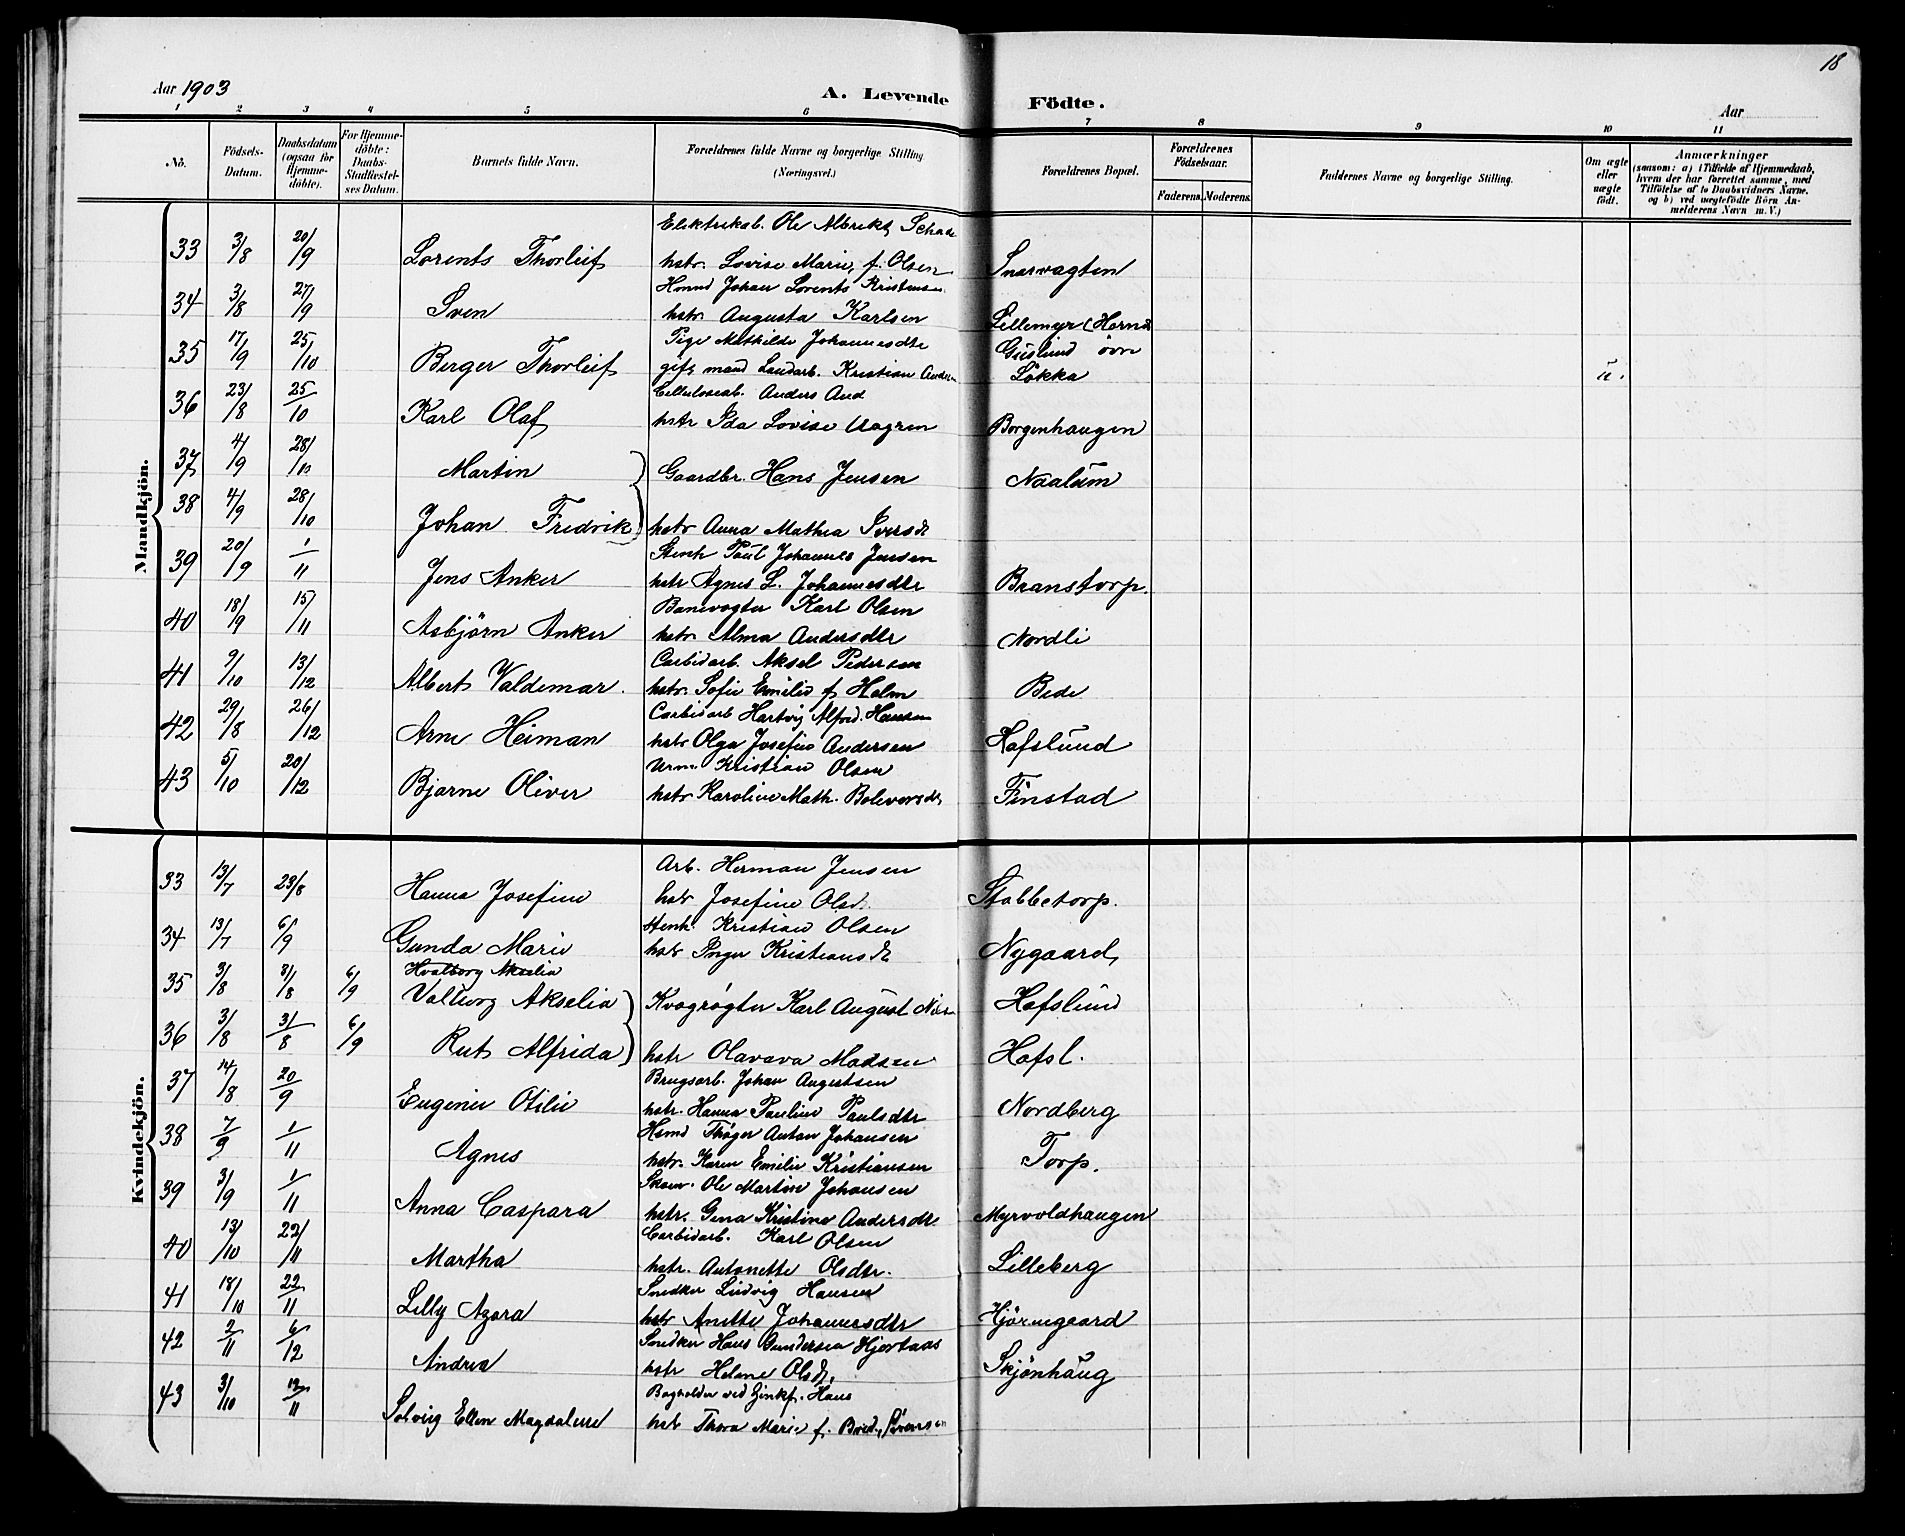 18
Aar 1903 A. Levende Födte. Aar
1 2 3 4 5 6 7 8 9 10 11
No. Födsels-Datum. Daabsdatum (ogsaa for Hjemme-döbte). For Hjemme-döbte: Daabs-Stadfæstel-ses Datum. Barnets fulde Navn. Forældrenes fulde Navne og borgerlige Stilling. (Næringsvei.) Forældrenes Bopæl. Forældrenes Födselsaar. Faderens. Moderens. Faddernes Navne og borgerlige Stilling. Om ægte eller uægte födt. Anmærkninger (saasom: a) i Tilfælde af Hjemmedaab, hvem der har forrettet samme, med Tilföielse af to Daabsvidners Navne, og b) ved uægtefödte Börn An-melderens Navn m. V.)
Mandkjön.
Elektrikab. Ole Albrikt Schade
33 3/8 20/9 Lorents Thorleif hstr. Lovise Marie, f. Olsen Snarvagten
Hmnd Johan Lorents Kristensen
34 3/8 27/9 Sven hstr Augusta Karlsen Lillemyr (Hornd
Pige Mathilde Johannesdtr Guslund övre
35 17/9 25/10 Berger Thorleif gift mand Landarb. Kristian Anders Lökka u.
Celluloseab. Anders And
36 23/8 25/10 Karl Olaf hstr Ida Lovise Borgenhaugen
37 4/9 28/10 Martin Gaardbr. Hans Jensen Naalum
38 4/9 28/10 Johan Fredrik hstr Anna Mathea Iversdt
Stenh Paul Johannes Jensen
39 20/9 1/11 Jens Anker hstr Agnes L. Johannesdtr Branstorp.
Banevogter Karl Olsen
40 18/9 15/11 Asbjörn Anker hstr. Alma Andersdtr Nordli
Carbidarb. Aksel Pedersen
41 9/10 13/12 Albert Valdemar. hstr. Sofie Emilie f. Holm Bede
Carbidarb Hartvig Alfred. Hansen
42 29/8 26/12 Arne Heiman hstr Olga Josefine Andersen Hafslund
Urm. Kristian Olsen
43 5/10 20/12 Bjarne Oliver hstr Karoline Math. Boleversdt Finstad
Kvindekjön.
Arb. Herman Jensen
33 13/7 23/8 Hanna Josefine hstr Josefine Olsd. Stabbetorp.
Stenh. Kristian Olsen
34 13/7 6/9 Gunda Marie hstr Inger Kristiansdt Nygaard
Hvalborg Akselia
35 3/8 8/8 6/9 Valborg Akselia Kvægrögter Karl August Hafslund
36 3/8 31/8 6/9 Rut Alfrida hstr Olavava Madsen Hafsl.
Brugsarb. Johan Augustsen
37 14/8 20/9 Eugenie Otilie hstr. Hanna Pauline Paulsdtr Nordberg
Hsmd Thöger Anton Johansen
38 7/9 1/11 Agnes hstr. Karen Emilie Kristiansen Torp.
Skom. Ole Martin Johansen
39 3/9 1/11 Anna Caspara hstr. Gina Kristine Andersdtr Myrvoldhaugen
Carbidarb. Karl Olsen
40 13/10 22/11 Martha hstr. Antonette Olsdtr. Lilleberg
Snedker Ludvig Hansen
41 18/10 22/11 Lilly Agora hstr Anette Johannesdtr Hjörnegaard
Snedker Hans Gundersen Hjortaas
42 2/11 6/12 Andrea hstr Helene Olsdt, Skjönhaug
Bogholder ved Zinkf. Hans
43 3/10 Solveig Ellen Magdalene hstr Thora Marie f. Iversen